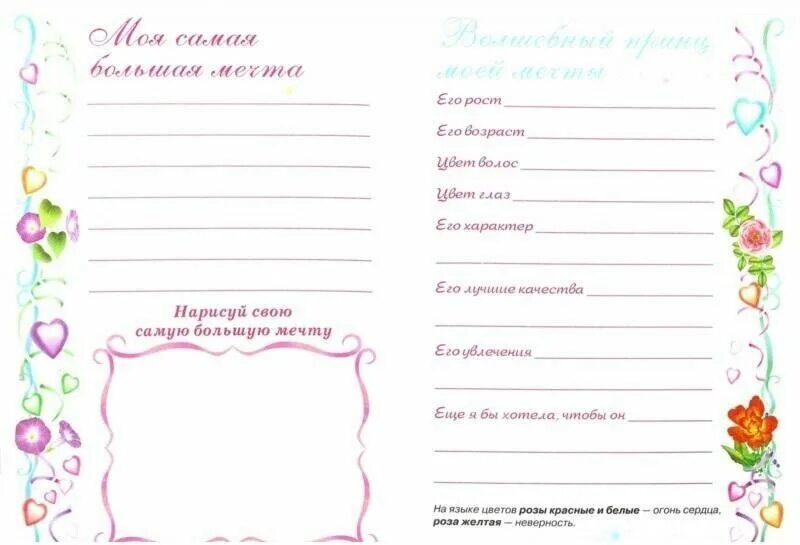 Моя самая
большая мечта
Нарисуй свою
самую большую мечту
Волшебный принц
моей мечты
Его рост
Его возраст
Цвет волос
Цвет глаз
Его характер
Его лучшие качества
Его увлечения
Еще я бы хотела, чтобы он
На языке цветов розы красные и белые — огонь сердца,
роза желтая — неверность.